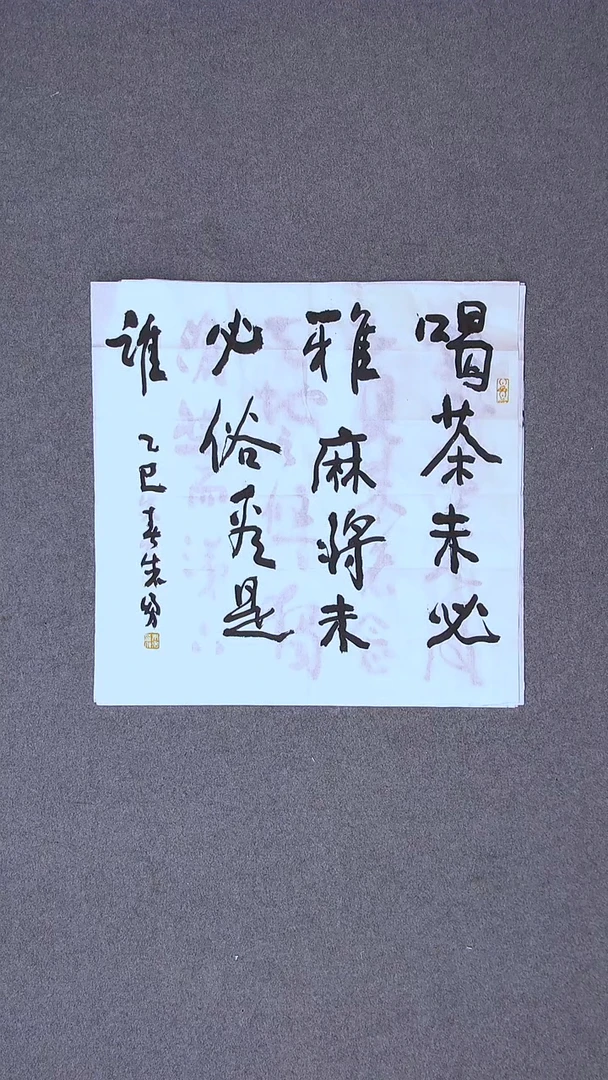 喝茶未必
雅麻将未
必俗看是
誰
乙巳春朱